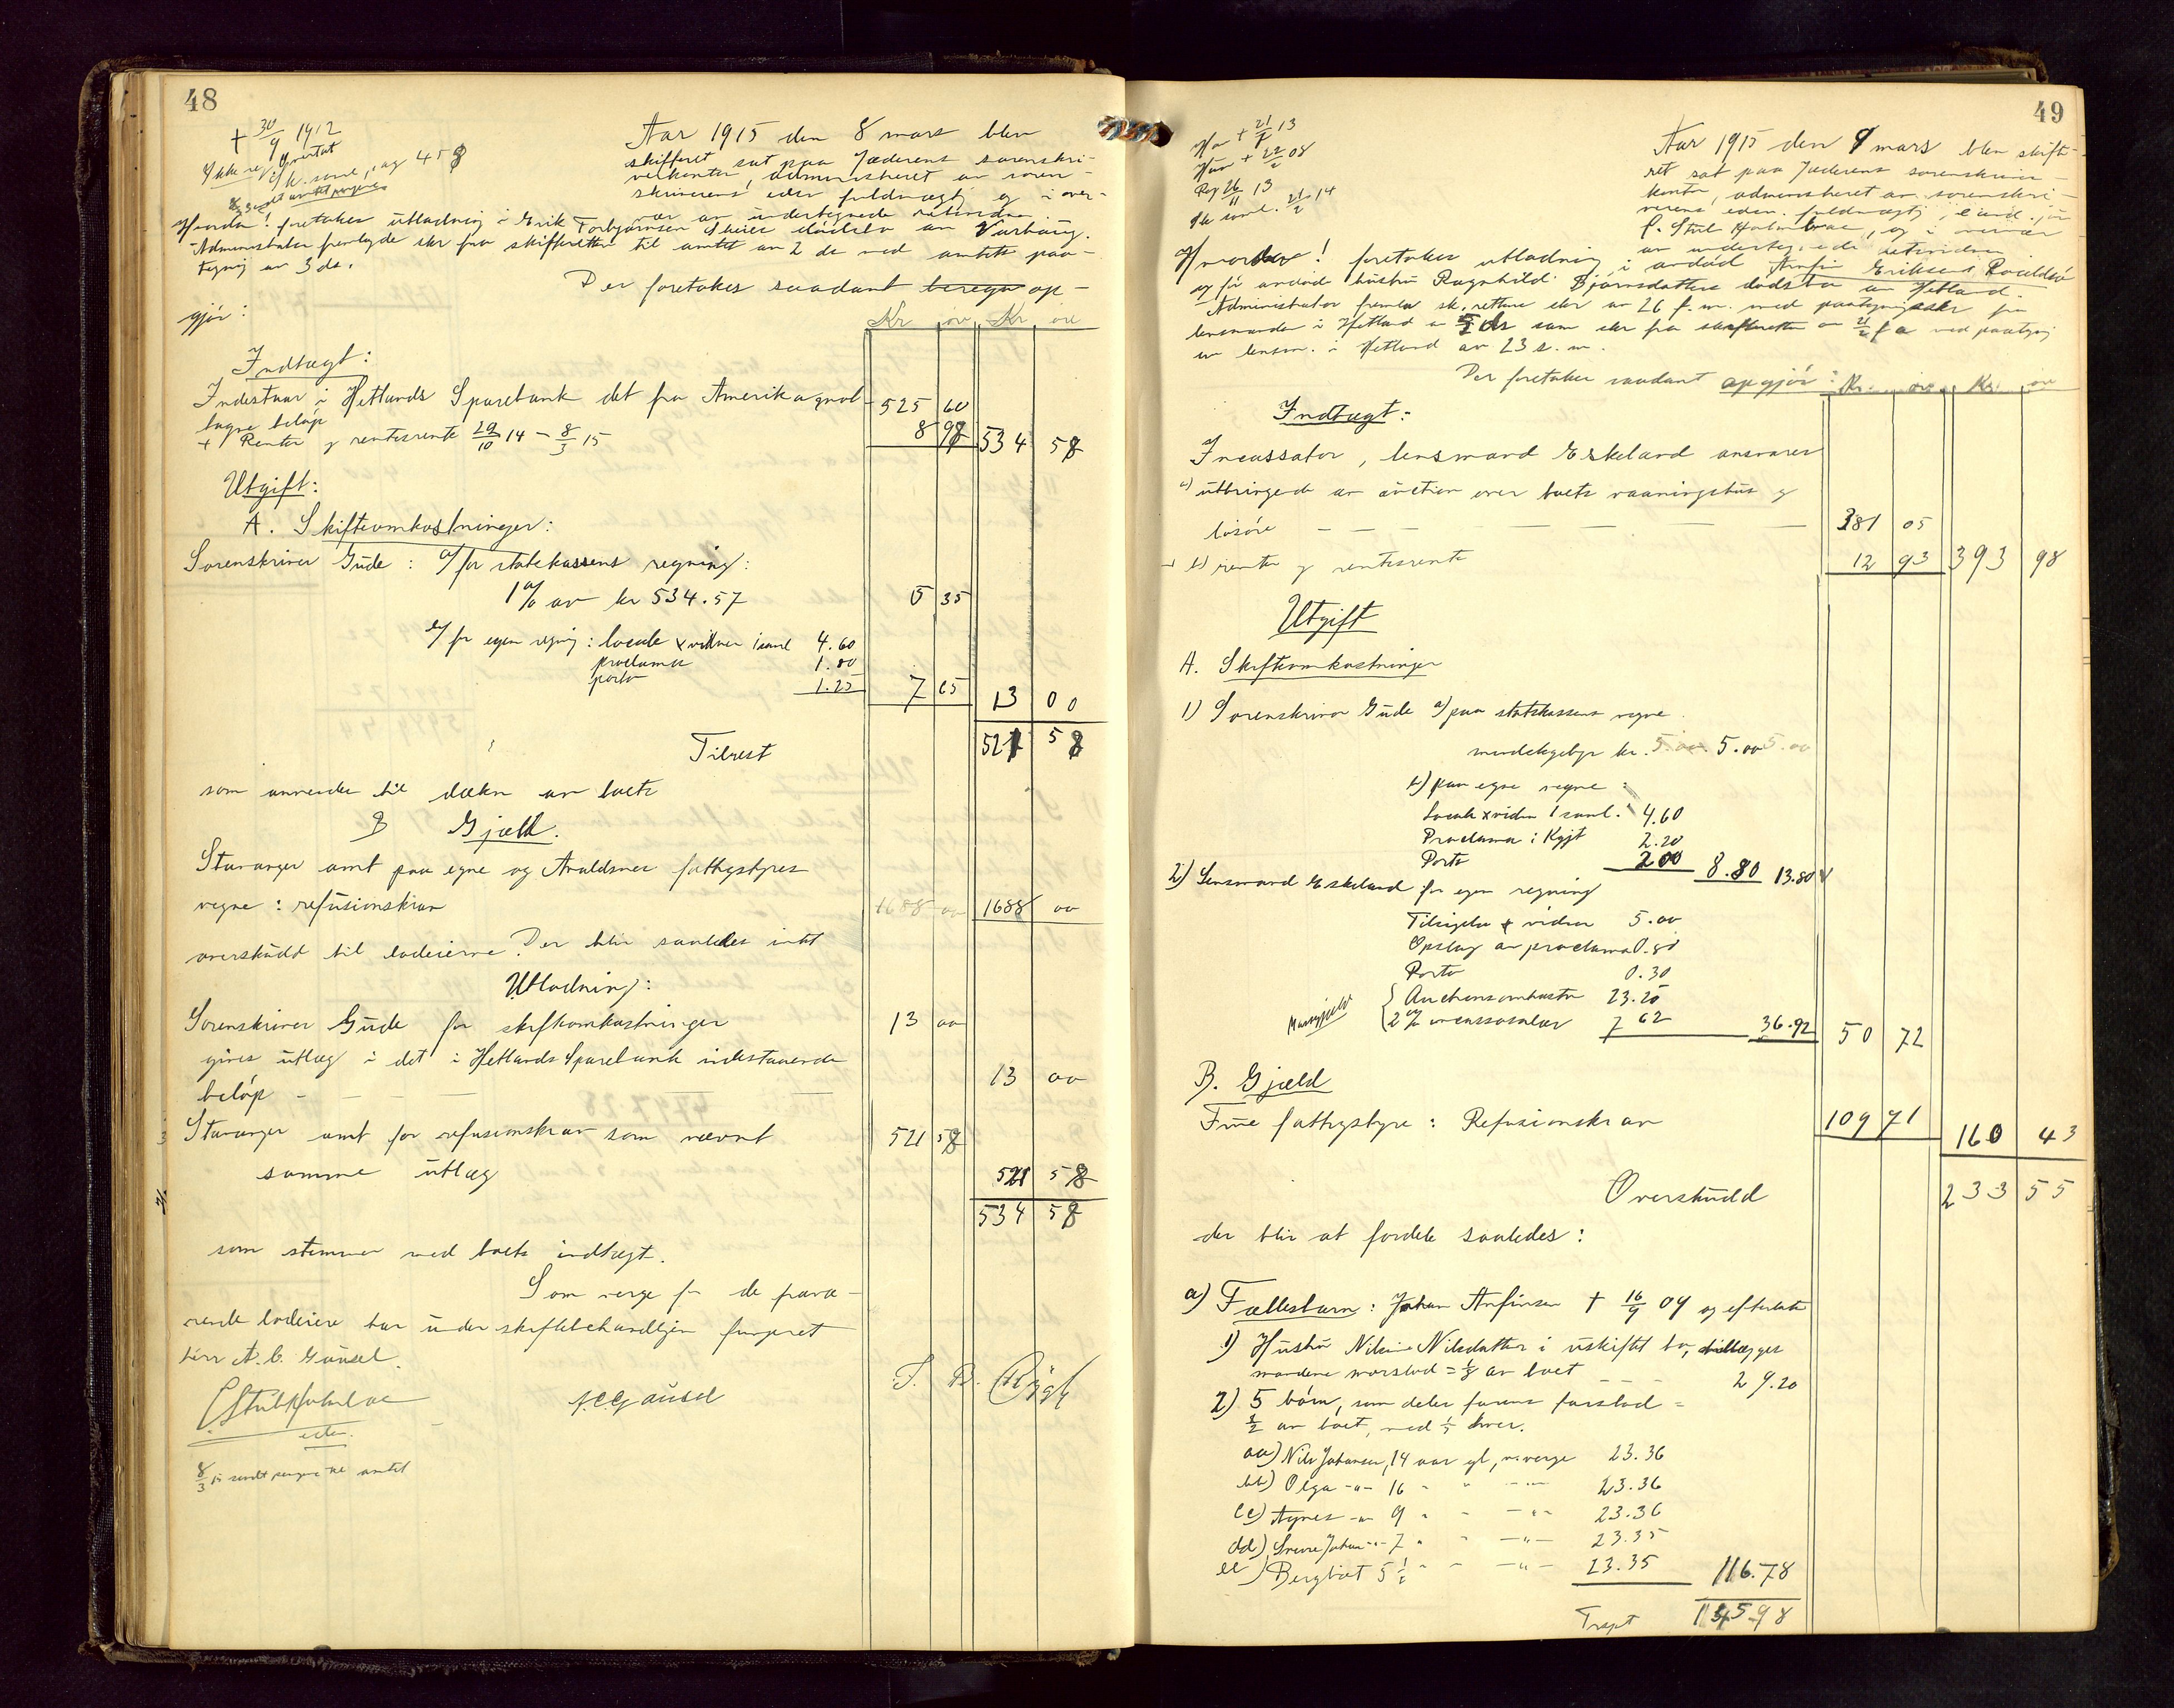 48
† 30/9 1912
Aar 1915 den 8 mars blev
skifteret sat paa Jæderens sorenskri-
verkontor, administreret av soren-
skriverens edsv fuldmægtig og i over-
vær av undertegnede retsvidne.
Hvorda! foretokes utlodning i Erik Torbjørnsen dødsbo av Varhaug.
Administrator fremlagde skr fra skifteretten til amtet av 2 ds med amtets paa-
tegning av 3 ds.
Der foretokes saadant op-
gjør:
Kr øre Kr øre
Indtægt:
Indestaar i Hetlands Sparebank det fra Amerika
beløp 525 60
+ Renter og rentesrente 29/10 14 – 8/3 15 8 98 534 58
Utgift:
A. Skifteomkostninger:
Sorenskriver Gude: a/ for statskassens regning:
1 % av kr 534.57 5 35
b/ for egen regning: locale & vidner 1 saml 4.60
proclama 1.80
porto 1.25 7 65 13 00
Tilrest 521 58
som anvendes til dækn av boets
B Gjæld.
Stavanger amt paa egne og Avaldsnes fattigstyres
vegne: refusionskrav 1688 00 1688 00
overskudd til lodeierne. Der blir saaledes intet
Utlodning:
Sorenskriver Gude for skifteomkostninger 13 00
gives utlæg i det i Hetlands Sparebank indestaaende
beløp – – – – 13 00
Stavanger amt for refusionskrav som nævnt 521 58
samme utlæg 521 58
534 58
som stemmer med boets indtægt.
Som verge for de fravæ-
rende lodeiere har under skiftebehandlingen fungeret
herr A. C. Gausel.
A C Gausel
8/3 15 sendt pengene til amtet
49
Ha † 21/8 13
Hun † 22/2 08
Reg 26/11 13
Sk saml. 21/2 14
Aar 1915 den 8 mars blev skifte-
ret sat paa Jæderens sorenskriver-
kontor, administreret av sorenskri-
verens edsv. fuldmægtig, cand. jur
og i overvær
av undertegnede retsvidner
Hvorda! foretokes utlodning i avdød Arnfin Eriksens
og før avdød hustru Ragnhild Bjørnsdatters dødsbo av Hetland.
Administrator fremla sk.rettens skr av 26 f.m. med paategningsskr fra
lensmanden i Hetland av samt skr fra skifteretten av 21/2 f a med paategning
av lensm. i Hetland av 23 s. m.
Der foretokes saadant opgjør: Kr. øre Kr. øre
Indtægt:
Incassator, lensmand Eskeland ansvarer
a) utbringende av auction over boets vaaningshus og
løsøre – – – – 381 05
b) renter og rentesrente 12 93 393 98
Utgift
A. Skifteomkostninger
1) Sorenskriver Gude a) paa statskassens vegne
mindstegebyr kr. 5.00 5.00 5.00
b) paa egne vegne:
Locale & vidner 1 saml. 4.60
Proclama i Kgjt 2.20
Porto 2 00 8.80 13.80
2) Lensmand Eskeland for egen regning
Tilsigelse & vidner 5.00
Opslag av proclama 0.80
Porto 0.30
Auctionsomkostn 23.20
2 % incassosalær 7 62 36.92 50 72
B. Gjæld
Time fattigstyre: Refusionskrav 109 71 160 43
Overskudd 233 55
der blir at fordele saaledes:
a) Fællesbarn: Johan Arnfinsen † 16/9 09 og efterlater
1) Hustru Nilsine Nilsdatter i uskiftet bo, tillægges
mandens morslod = 1/8 av boet – – – 29.20
2) 5 børn, som deler farens farslod =
1/2 av boet, med 1/5 hver.
aa) Nils Johansen, 14 aar gl, v. verge 23.36
bb) Olga –"– 16 " " –"– 23.36
cc) Agnes –"– 9 " " –"– 23.36
dd) Sverre Johan –"– 7 " " –"– 23.35
ee) Bergtvet 5 1/2 " " –"– 23.35 116.78
Trspt 145.98